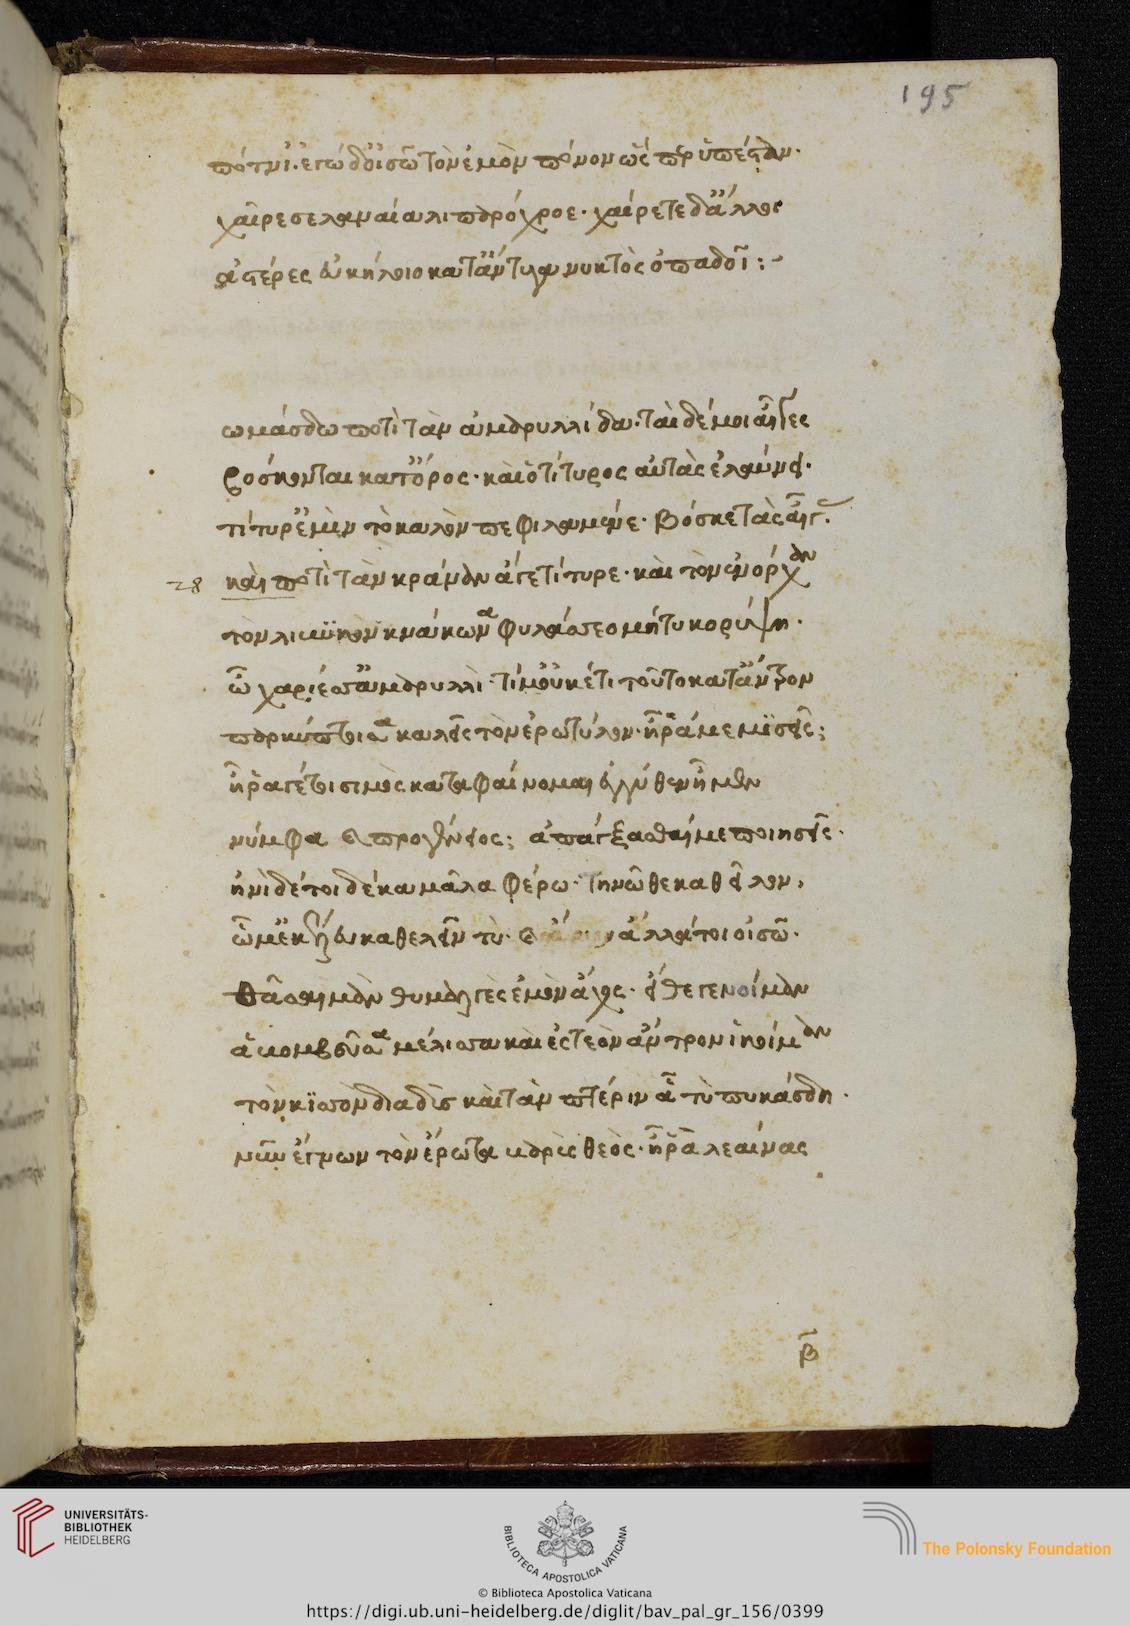 195
πότνι. ἐγὼ δ' οἰσῶ τὸν ἐμὸν πόνον ὥσπερ ὑπέσταν.
χαῖρε σελαναία λιπαρόχροε. χαίρετε δ' ἄλλοι
ἀστέρες εὐκήλοιο κατ' ἄντυγα νυκτὸς ὀπαδοί:
ωμάσδω ποτὶ τὰν ἀμαρυλλίδα. ταὶ δέ μοι αἶγες
βόσκονται κατ' ὄρος. καὶ ὁ τίτυρος αὐτὰς ἐλαύνει.
τίτυρ' ἐμὶν τὸ καλὸν πεφιλαμένε. βόσκε τὰς αἶγας.
28 καὶ ποτὶ τὰν κράναν ἄγε τίτυρε. καὶ τὸν ἐνόρχαν
τὸν λιβυκὸν κνάκωνα φυλάσσεο μή τυ κορύψη.
ὦ χαρίεσσ' ἀμαρυλλὶ τί μ' οὐκέτι τοῦτο κατ' ἄντρον
παρκύπτοισα καλεῖς τὸν ἐρωτύλον. ἦ ῥά με μισεῖς;
ἦ ῥά γέ τοι σιμὸς καταφαίνομαι ἐγγύθεν ἦμεν
νύμφα καὶ προγένειος; ἀπάγξασθαί με ποιησεῖς.
ἠνίδε τοι δέκα μᾶλα φέρω. τηνῶθε καθεῖλον,
ὦ μ' ἐκέλευ καθελεῖν τὺ. καὶ ἄλλά τοι οἰσῶ.
θᾶσαι μὰν θυμαλγὲς ἐμὸν ἄχος. εἴθε γενοίμαν
ἁ βομβεῦσα μέλισσα καὶ ἐς τεὸν ἄντρον ἱκοίμαν
τὸν κισσὸν διαδὺς καὶ τὰν πτέριν ᾇ τὺ πυκάσδη.
νῦν ἔγνων τὸν ἔρωτα βαρὺς θεός. ἦ ῥα λεαίνας
β
UNIVERSITÄTS-
BIBLIOTHEK
HEIDELBERG
BIBLIOTECA APOSTOLICA VATICANA
The Polonsky Foundation
© Biblioteca Apostolica Vaticana
https://digi.ub.uni-heidelberg.de/diglit/bav_pal_gr_156/0399